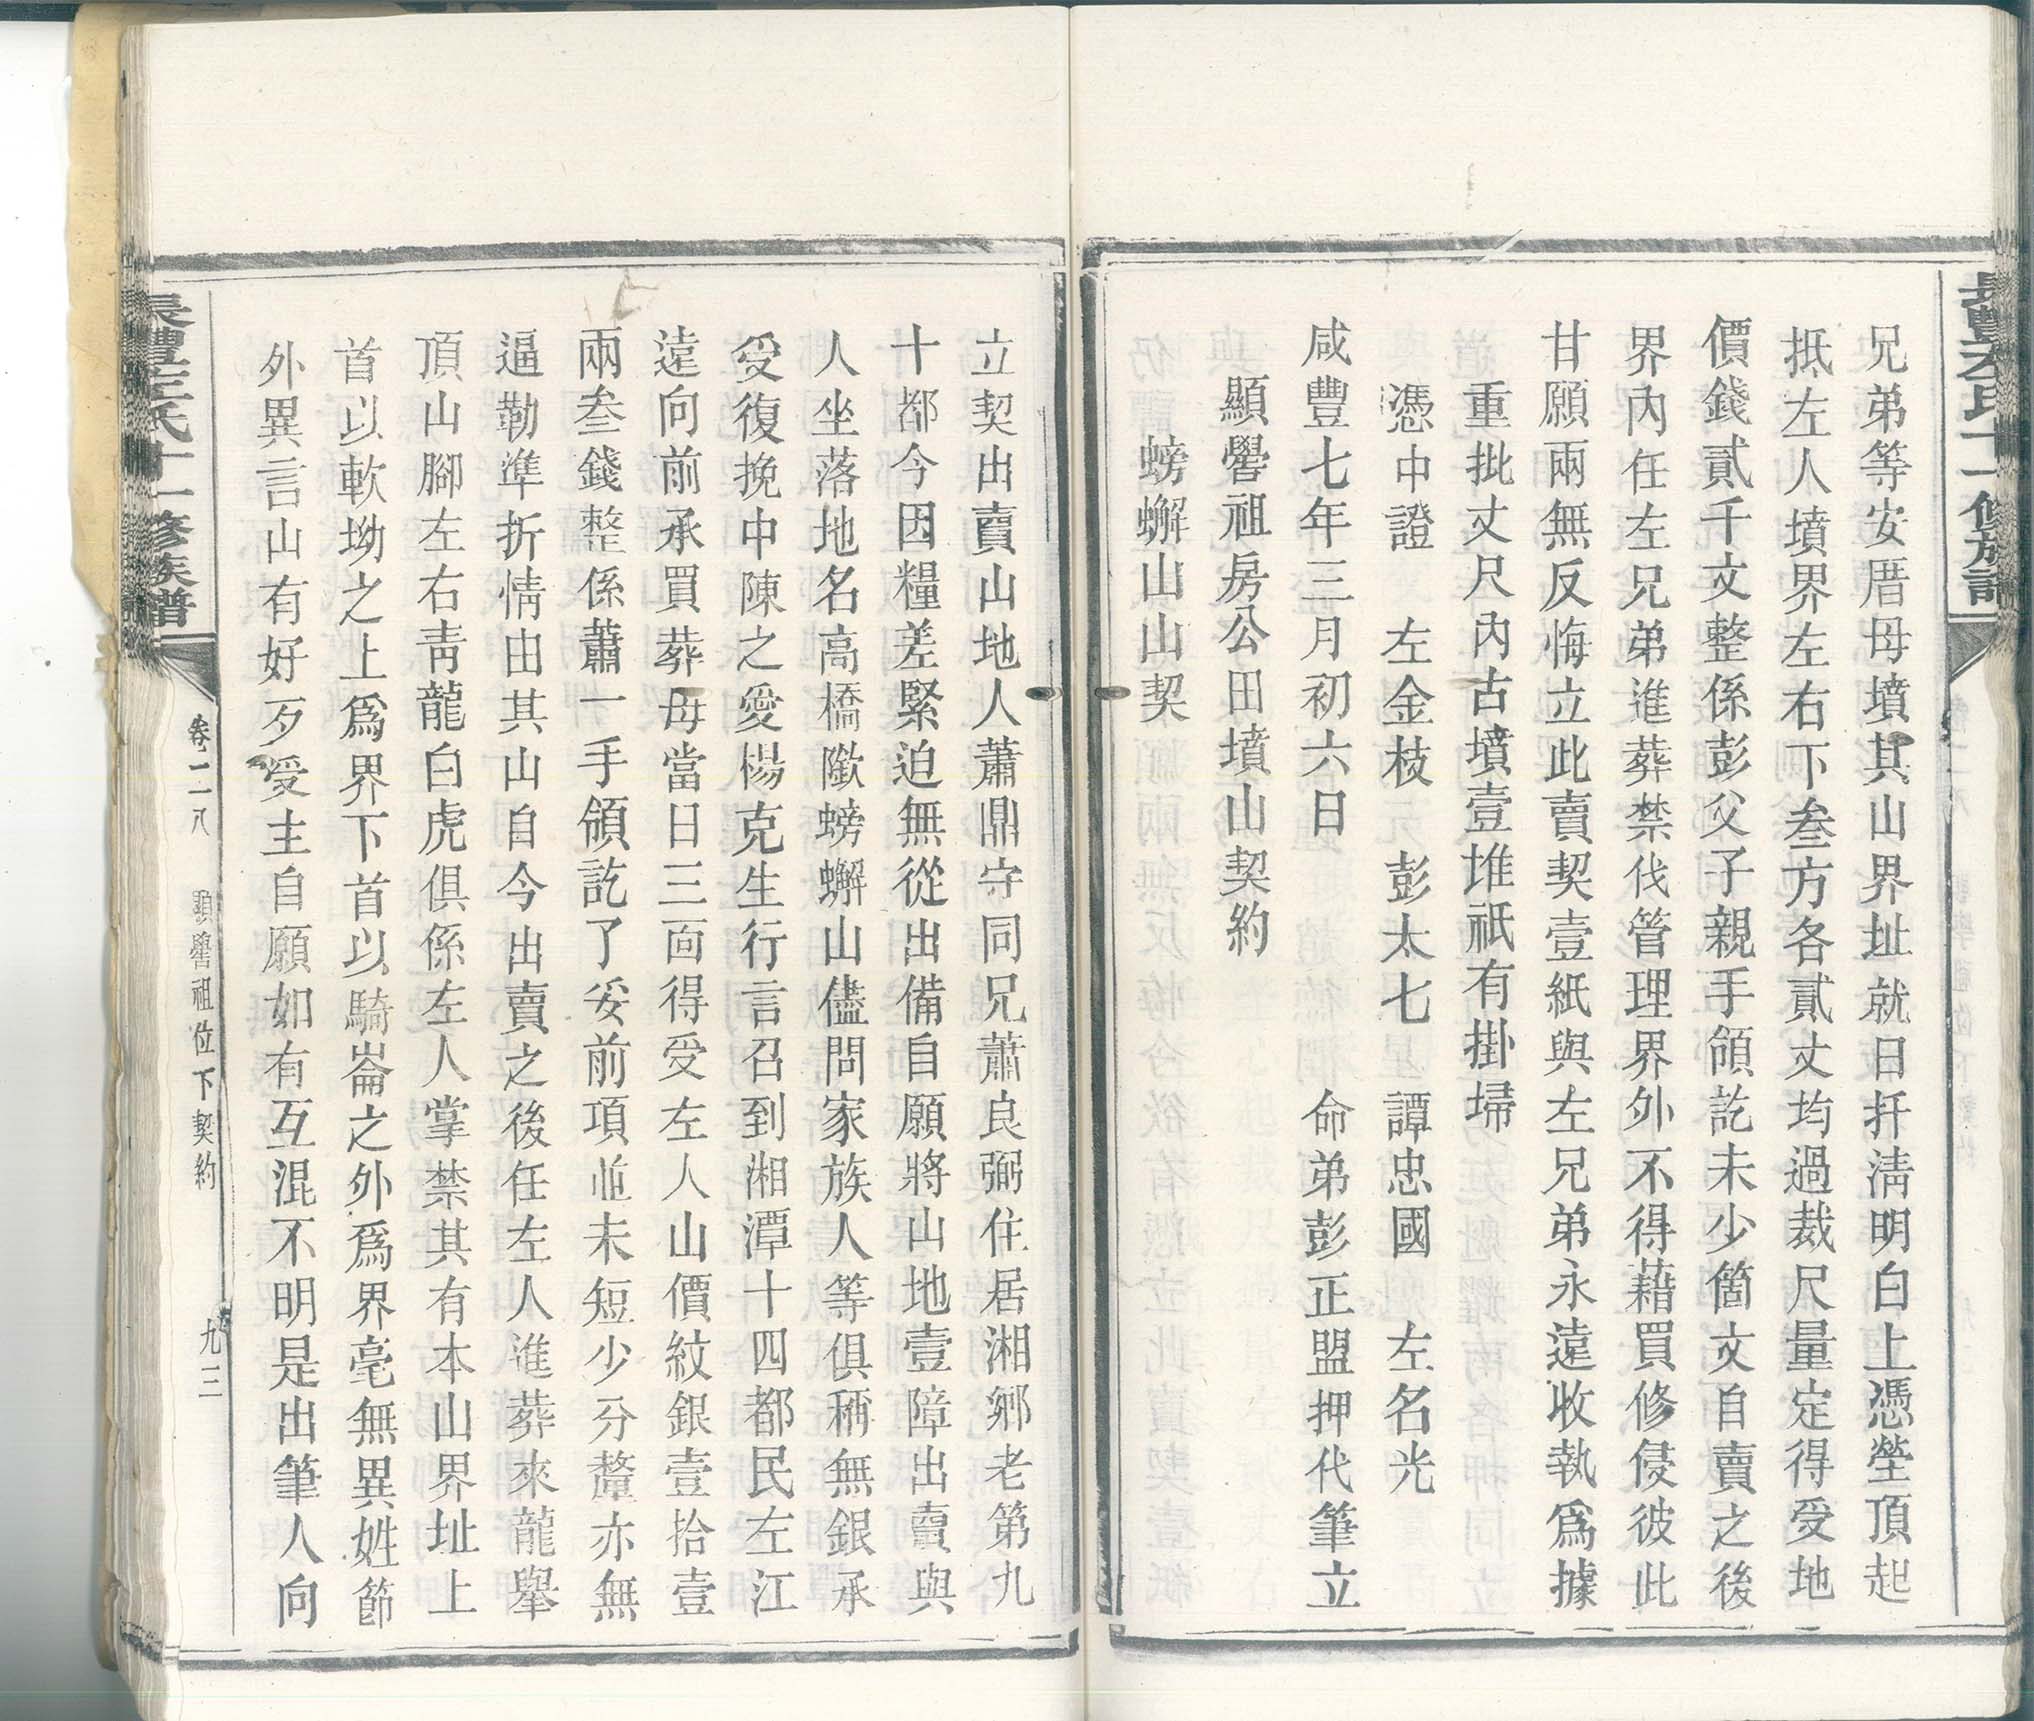 兄弟等安厝母墳其山界址就日扞淸明白上憑塋頂起
抵左人墳界左右下叁方各貳丈均過裁尺量定得受地
價錢貳千文整係彭父子親手領訖未少箇文自賣之後
界內任左兄弟進葬禁伐管理界外不得藉買修侵彼此
甘願兩無反悔立此賣契壹紙與左兄弟永遠收執爲據
重批丈尺內古墳壹堆祇有掛埽
憑中證 左金枝 彭太七 譚忠國 左名光
咸豐七年三月初六日 命弟彭正盟押代筆立
顯譽祖房公田墳山契約
螃蠏山山契
立契出賣山地人蕭鼎守同兄蕭良弼住居湘鄉老第九
十都今因糧差緊迫無從出備自願將山地壹障出賣與
人坐落地名高橋隞螃蠏山儘問家族人等俱稱無銀承
受復挽中陳之愛楊克生行言召到湘潭十四都民左江
遠向前承買葬母當日三面得受左人山價紋銀壹拾壹
兩叁錢整係蕭一手領訖了妥前項並未短少分釐亦無
逼勒準折情由其山自今出賣之後任左人進葬來龍舉
頂山腳左右靑龍白虎俱係左人掌禁其有本山界址上
首以軟坳之上爲界下首以騎崙之外爲界毫無異姓節
外異言山有好歹受主自願如有互混不明是出筆人向
長豐左氏十一修族譜
卷二八 顯譽祖位下契約 九三